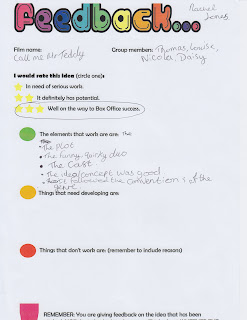 Feedback...
Rachel
Jones
Film name:
Call me Mr Teddy
Group members: Thomas, Louise,
Nicola, Daisy
I would rate this idea (circle one):
In need of serious work.
It definitely has potential.
Well on the way to Box Office success.
The elements that work are are: the
• The plot
• The funny, quirky duo
• The Cast
• The idea/concept was good
• followed the conventions of the
genre
Things that need developing are:
Things that don't work are: (remember to include reasons)
REMEMBER: You are giving feedback on the idea that has been